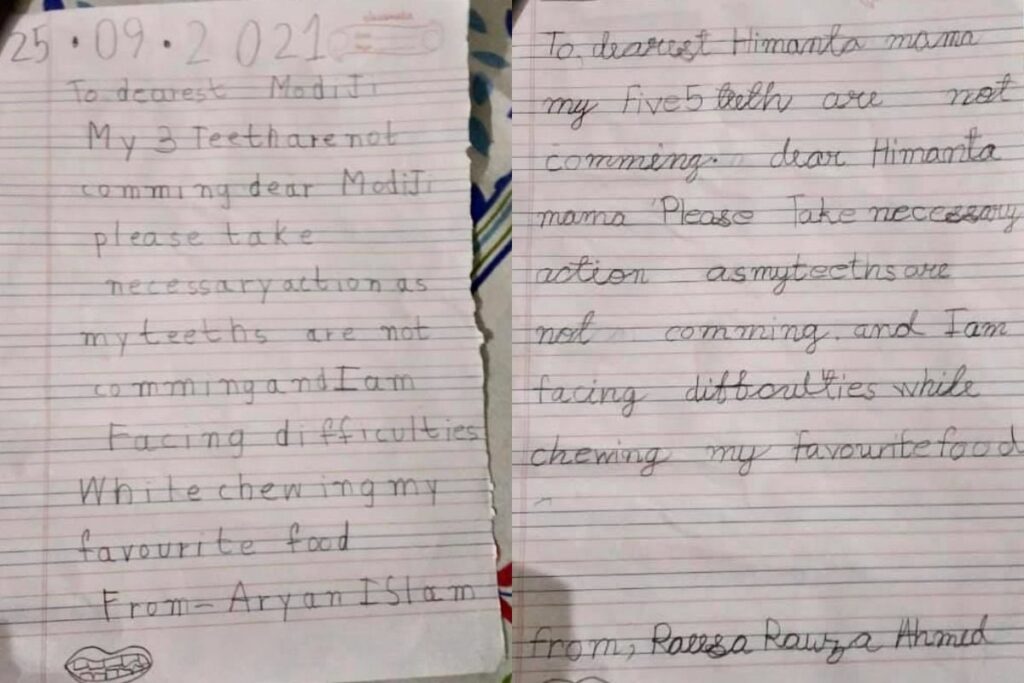 25.09.2021
classmate
To dearest ModiJi
My 3 Teeth are not
comming dear ModiJi
please take
necessary action as
my teeths are not
comming and I am
Facing difficulties
While chewing my
favourite food
From - Aryan ISlam
To, dearest Himanta mama
my Five 5 teeth are not
comming. dear Himanta
mama Please Take necessary
action as my teeths are
not comming. and I am
facing difficulties while
chewing my favourite food
from, Raeesa Rawza Ahmed